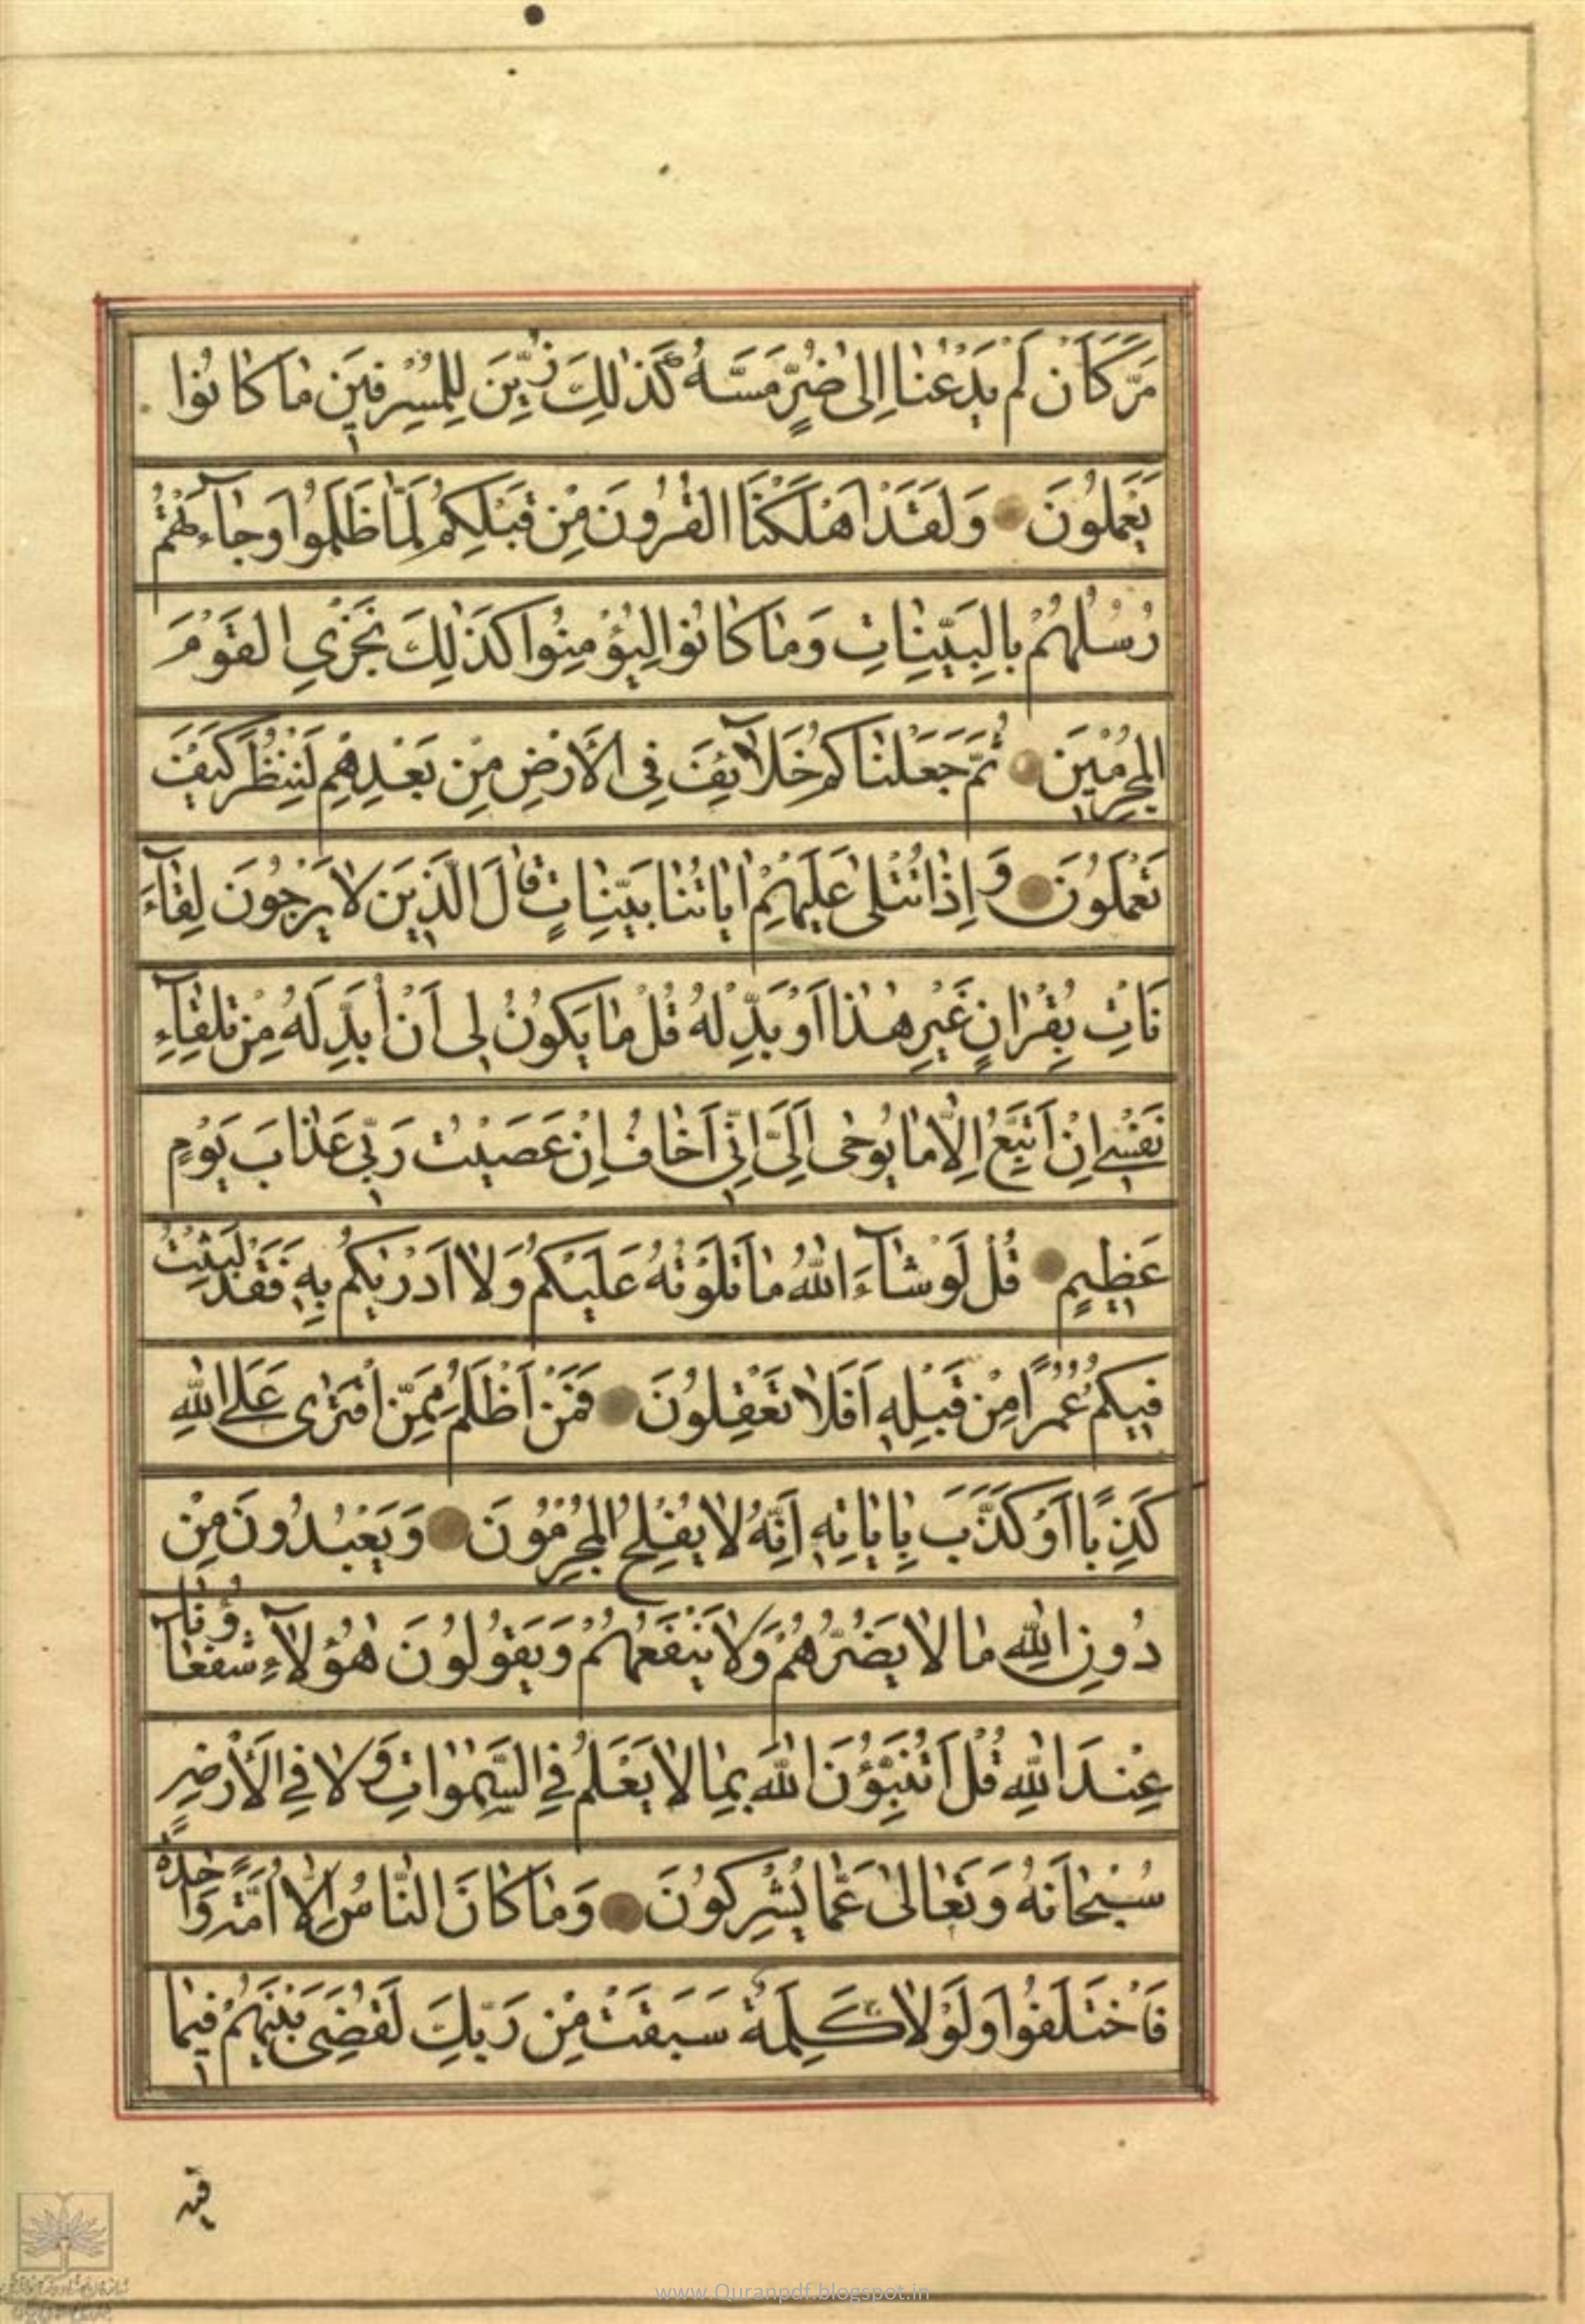 مَرَّ كَاَنْ لَمْ يَدْعُنٰا اِلىٰ ضُرٍّ مَسَّهُ كَذٰلِكَ زُيِّنَ لِلْمُسْرِفٖينَ مٰا كٰانُوا
يَعْمَلُونَ وَلَقَدْ اَهْلَكْنَا الْقُرُونَ مِنْ قَبْلِكُمْ لَمّٰا ظَلَمُوا وَجٰآءَتْهُمْ
رُسُلُهُمْ بِالْبَيِّنٰاتِ وَمٰا كٰانُوا لِيُؤْمِنُوا كَذٰلِكَ نَجْزِي الْقَوْمَ
الْمُجْرِمٖينَ ثُمَّ جَعَلْنٰاكُمْ خَلآٰئِفَ فِي الْاَرْضِ مِنْ بَعْدِهِمْ لِنَنْظُرَ كَيْفَ
تَعْمَلُونَ وَاِذٰا تُتْلىٰ عَلَيْهِمْ اٰيٰاتُنٰا بَيِّنٰاتٍ قٰالَ الَّذٖينَ لاٰ يَرْجُونَ لِقٰآءَ
نَاتِ بِقُرْاٰنٍ غَيْرِ هٰذٰا اَوْ بَدِّلْهُ قُلْ مٰا يَكُونُ لٖى اَنْ اُبَدِّلَهُ مِنْ تِلْقٰآءِ
نَفْسٖى اِنْ اَتَّبِعُ اِلاّٰ مٰا يُوحىٰ اِلَيَّ اِنّٖى اَخٰافُ اِنْ عَصَيْتُ رَبّٖى عَذٰابَ يَوْمٍ
عَظٖيمٍ قُلْ لَوْ شٰآءَ اللّٰهُ مٰا تَلَوْتُهُ عَلَيْكُمْ وَلاٰ اَدْرٰيكُمْ بِهٖ فَقَدْ لَبِثْتُ
فٖيكُمْ عُمُرًا مِنْ قَبْلِهٖ اَفَلاٰ تَعْقِلُونَ فَمَنْ اَظْلَمُ مِمَّنِ افْتَرٰى عَلَى اللّٰهِ
كَذِبًا اَوْ كَذَّبَ بِاٰيٰاتِهٖ اِنَّهُ لاٰ يُفْلِحُ الْمُجْرِمُونَ وَيَعْبُدُونَ مِنْ
دُونِ اللّٰهِ مٰا لاٰ يَضُرُّهُمْ وَلاٰ يَنْفَعُهُمْ وَيَقُولُونَ هٰؤُلآٰءِ شُفَعٰآؤُنٰا
عِنْدَ اللّٰهِ قُلْ اَتُنَبِّؤُنَ اللّٰهَ بِمٰا لاٰ يَعْلَمُ فِي السَّمٰوٰاتِ وَلاٰ فِي الْاَرْضِ
سُبْحٰانَهُ وَتَعٰالىٰ عَمّٰا يُشْرِكُونَ وَمٰا كٰانَ النّٰاسُ اِلاّٰ اُمَّةً وٰاحِدَةً
فَاخْتَلَفُوا وَلَوْلاٰ كَلِمَةٌ سَبَقَتْ مِنْ رَبِّكَ لَقُضِيَ بَيْنَهُمْ فٖيمٰا
فيه
www.Quranpdf.blogspot.in